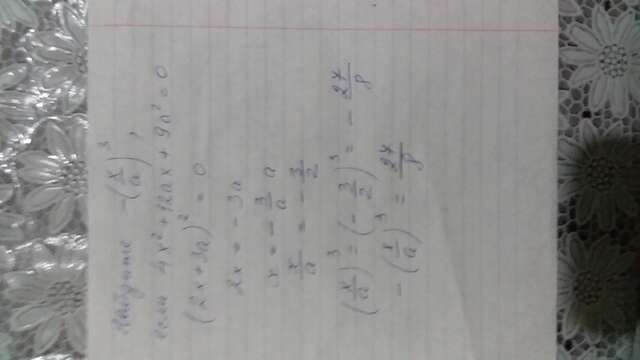 Найдите -(x/a)³,
если 4x² + 12ax + 9a² = 0
(2x+3a)² = 0
2x = - 3a
x = - 3/a a
x/a = - 3/2
(x/a)³ = (- 3/2)³ = - 27/8
-(x/a)³ = 27/8